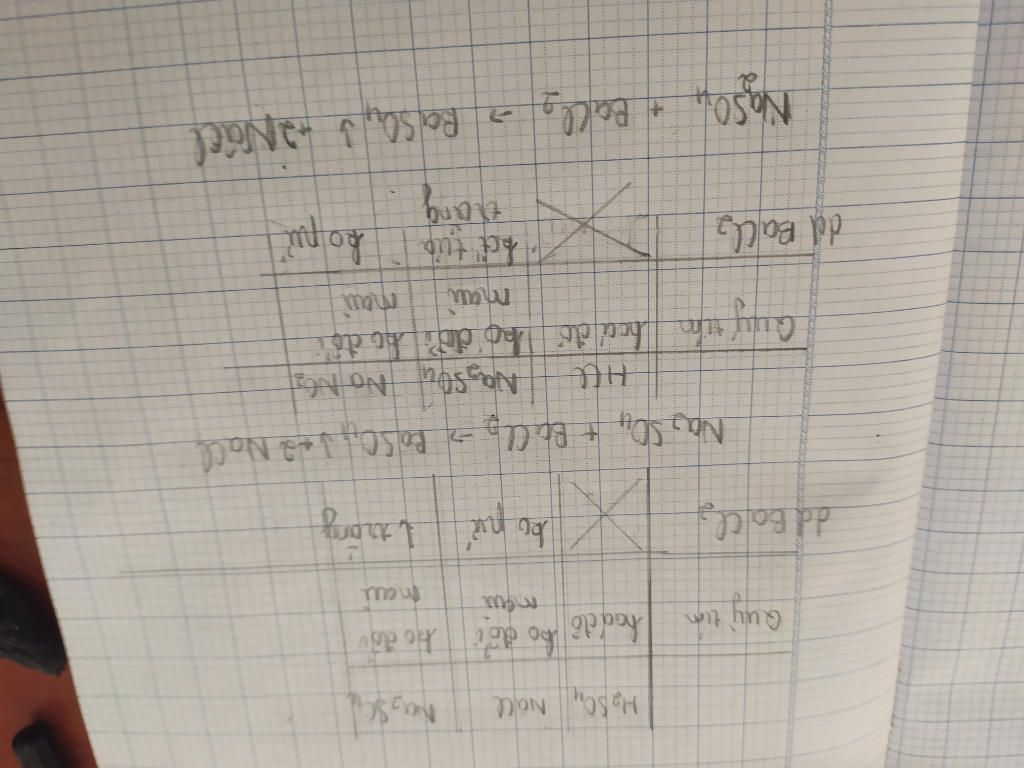 H₂SO₄ NaCl Na₂SO₄
Quỳ tím hoá đỏ ko đổi màu ko đổi màu
dd BaCl₂ ko pứ ↓ trắng
Na₂SO₄ + BaCl₂ → BaSO₄ ↓ + 2 NaCl
HCl Na₂SO₄
Quỳ tím hoá đỏ ko đổi màu ko đổi màu
dd BaCl₂ kết tủa trắng ko pứ
Na₂SO₄ + BaCl₂ → BaSO₄ ↓ + 2NaCl